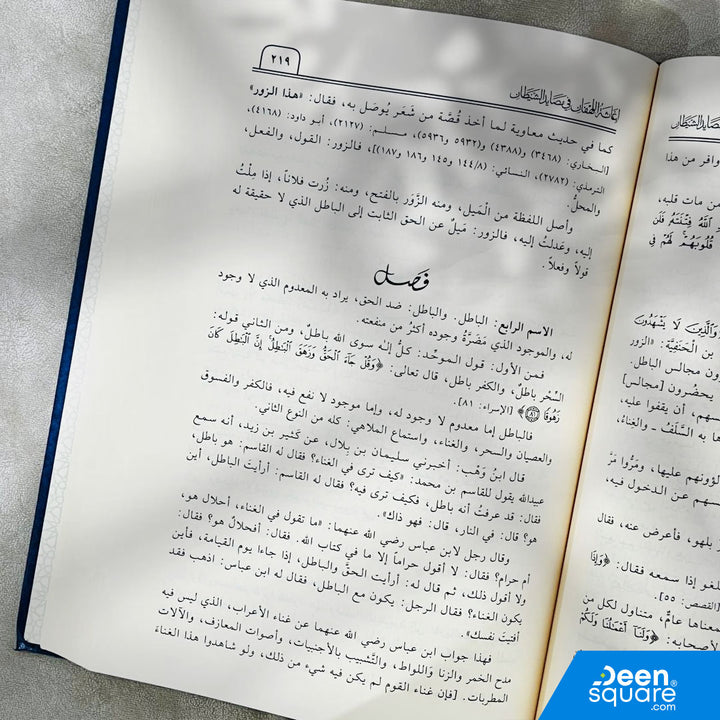 إغاثة اللهفان في مصايد الشيطان
٢١٩
كما في حديث معاوية لما أخذ قُصَّة من شَعَر يُوصَل به، فقال: «هذا الزور»
[البخاري: (٣٤٦٨) و(٤٣٨٨) و(٥٩٣٢ و٥٩٣٦)، مسلم: (٢١٢٧)، أبو داود: (٤١٦٨)،
الترمذي: (٢٧٨٢)، النسائي: (١٤٤/٨ و١٤٥ و١٨٦ و١٨٧)]، فالزور: القول، والفعل،
والمحلُّ.
وأصل اللفظة من الْمَيل، ومنه الزَّوَر بالفتح، ومنه: زُرت فلاناً، إذا مِلْتُ
إليه، وعَدلتُ إليه، فالزور: مَيلٌ عن الحق الثابت إلى الباطل الذي لا حقيقة له
قولاً وفعلاً.
فصل
الاسم الرابع: الباطل. والباطل: ضد الحق، يراد به المعدوم الذي لا وجود
له، والموجود الذي مَضَرَّةُ وجوده أكثرُ من منفعته.
فمن الأول: قول الموحِّد: كلُّ إله سوى الله باطلٌ، ومن الثاني قوله:
السِّحْر باطلٌ، والكفر باطل، قال تعالى: ﴿وَقُلْ جَاءَ الْحَقُّ وَزَهَقَ الْبَاطِلُ إِنَّ الْبَاطِلَ كَانَ
زَهُوقًا ٨١﴾ [الإسراء: ٨١].
فالباطل إما معدوم لا وجود له، وإما موجود لا نفع فيه، فالكفر والفسوق
والعصيان والسحر، والغناء، واستماع الملاهي: كله من النوع الثاني.
قال ابنُ وَهْب: أخبرني سليمان بن بِلال، عن كَثير بن زيد، أنه سمع
عبيدالله يقول للقاسم بن محمد: «كيف ترى في الغناء؟ فقال له القاسم: هو باطل،
فقال: قد عرفتُ أنه باطل، فكيف ترى فيه؟ فقال له القاسم: أرأيتَ الباطل، أين
هو؟ قال: في النار، قال: فهو ذاك».
وقال رجل لابن عباس رضي الله عنهما: «ما تقول في الغناء، أحلال هو،
أم حرام؟ فقال: لا أقول حراماً إلا ما في كتاب الله. فقال: أفحلالٌ هو؟ فقال:
ولا أقول ذلك، ثم قال له: أرأيت الحقَّ والباطل، إذا جاءا يوم القيامة، فأين
يكون الغناء؟ فقال الرجل: يكون مع الباطل، فقال له ابن عباس: اذهب فقد
أفتيتَ نفسك».
فهذا جواب ابن عباس رضي الله عنهما عن غناء الأعراب، الذي ليس فيه
مدح الخمر والزنا واللواط، والتَّشبيب بالأجنبيات، وأصوات المعازف، والآلات
المطربات. [فإن غناء القوم لم يكن فيه شيء من ذلك، ولو شاهدوا هذا الغناءَ
وافر من هذا
من مات قلبه،
اللَّهُ فِتْنَتَهُ فَلَن
قُلُوبَهُمْ لَهُمْ فِي
وَالَّذِينَ لَا يَشْهَدُونَ
بن الْحَنَفِيَّة: «الزور
رون مجالس الباطل.
يحضرون [مجالس]
سهم، أن يقفوا عليه،
ها به السَّلَفُ ـ والغِناءُ،
ؤونهم عليها، ومَرُّوا مَرَّ
سهم عن الدخول فيه،
بلهو، فأعرض عنه، فقال
لغو إذا سمعه فقال: ﴿وَإِذَا
[القصص: ٥٥].
معناها عامٌّ، متناول لكل من
لأصحابه: ﴿وَلَنَا أَعْمَالُنَا وَلَكُمْ
Deen
square
.com